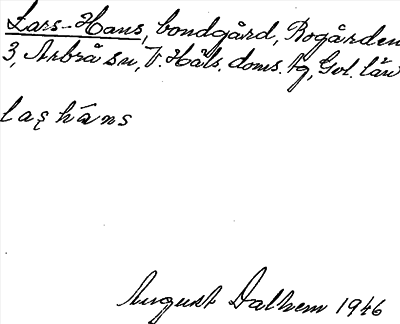 Lars-Hans, bondgård, Rogården
3, Arbrå sn, V. Häls. doms. tg, Gvl. län
laʂ hans
August Dalhem 1946